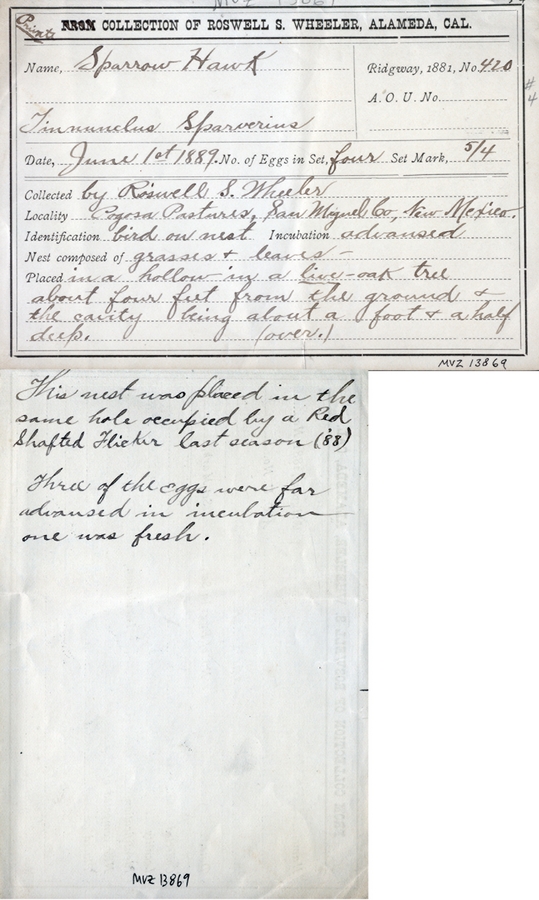 Private FROM COLLECTION OF ROSWELL S. WHEELER, ALAMEDA, CAL.
Name, Sparrow Hawk Ridgway, 1881, No. 420
A. O. U. No.
# 4
Tinnunclus Sparverius
Date, June 1st 1889. No. of Eggs in Set, four Set Mark, 5/4
Collected by Roswell S. Wheeler
Locality Pogosa Pastures, San Miguel Co, New Mexico.
Identification bird on nest Incubation advansed
Nest composed of grasses & leaves —
Placed in a hollow in a live-oak tree
about four feet from the ground &
the cavity being about a foot & a half
deep. (over.)
MVZ 13869
This nest was placed in the
same hole occupied by a Red
Shafted Flicker last season ('88)
Three of the eggs were far
advansed in incubation
one was fresh.
MVZ 13869